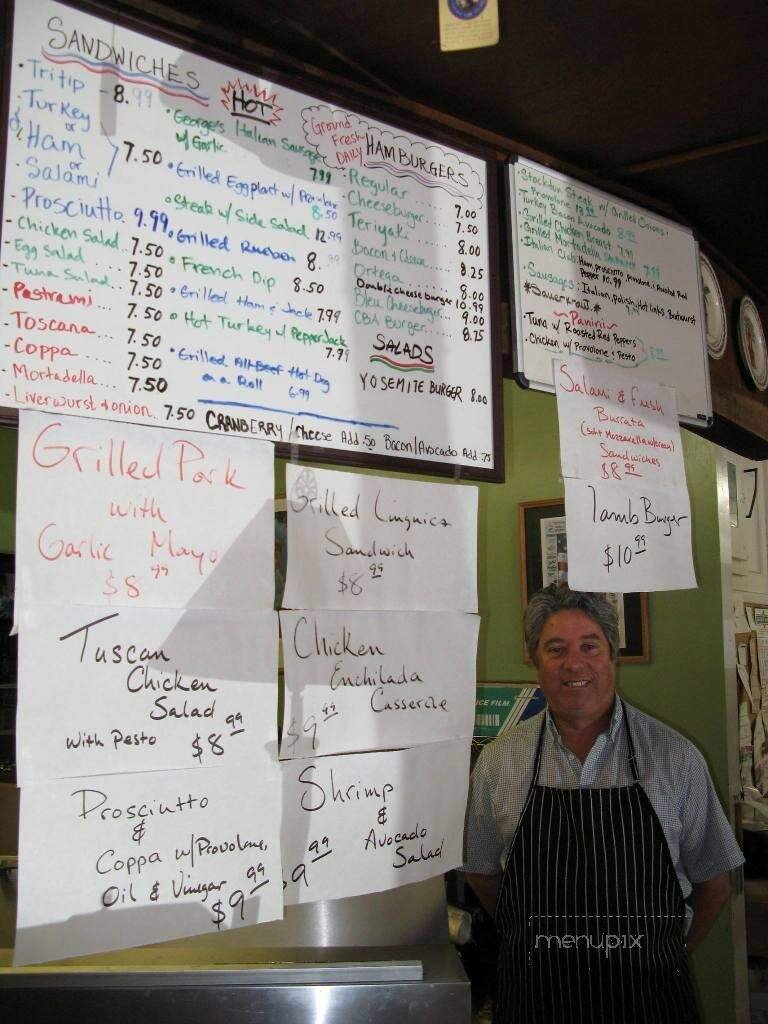 SANDWICHES
• Tritip - 8.99
• Turkey
or
Ham
or
• Salami
7.50
• Prosciutto. 9.99
• Chicken Salad. 7.50
• Egg Salad 7.50
• Tuna Salad. 7.50
• Pastrami... 7.50
• Toscana... 7.50
• Coppa .... 7.50
• Mortadella... 7.50
• Liverwurst & onion. 7.50
HOT
• George's Italian Sausage
w/ Garlic 7.99
• Grilled Eggplant w/
8.50
• Steak w/ Side Salad 12.99
• Grilled Rueben 8.99
• French Dip 8.50
• Grilled Ham & Jack 7.99
• Hot Turkey w/ PepperJack
7.79
• Grilled All-Beef Hot Dog
on a Roll 6.99
CRANBERRY / Cheese Add .50 Bacon/Avocado Add .75
Ground
Fresh
DAILY
HAMBURGERS
Regular 7.00
Cheeseburger .... 7.50
Teriyaki ..... 8.00
Bacon & Cheese 8.25
Ortega 8.00
Double cheese burge 10.99
Bleu Cheeseburger.. 9.00
CBA Burger. 8.75
SALADS
YOSEMITE BURGER 8.00
• Stockton Steak w/ Grilled Onions &
Provolone
Turkey Bacon Avocado
• Grilled Chicken Breast 7.99
• Grilled Mortadella 7.99
• Italian Club: Ham, prosciutto, provolone, & Roasted Red
Pepper 10.99
• Sausages: Italian, Polish, Hot links Bratwurst
*Sauerkraut.*
~Panini~
• Tuna w/ Roasted Red Peppers
• Chicken w/ Provolone & Pesto
Salami & fresh
Burrata
(soft Mozzarella w/cream)
Sandwiches
$8.99
Lamb Burger
$10.99
Grilled Pork
with
Garlic Mayo
$8.99
Grilled Linguica
Sandwich
$8.99
Tuscan
Chicken
Salad
with Pesto $8.99
Chicken
Enchilada
Casserole
$9.99
Prosciutto
&
Coppa w/Provolone,
Oil & Vinegar
$9.99
Shrimp
&
Avocado
Salad
$9.99
ICE FILM.
menupix